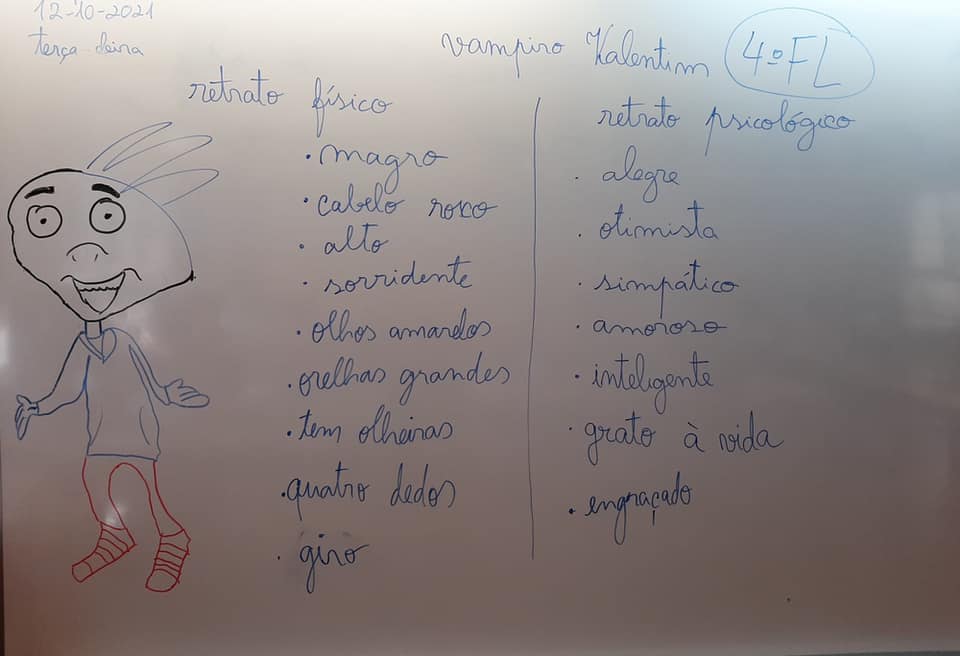 12-10-2021
terça-feira
vampiro Valentim 4º FL
retrato físico
• magro
• cabelo roxo
• alto
• sorridente
• olhos amarelos
• orelhas grandes
• tem olheiras
• quatro dedos
• giro
retrato psicológico
• alegre
• otimista
• simpático
• amoroso
• inteligente
• grato à vida
• engraçado